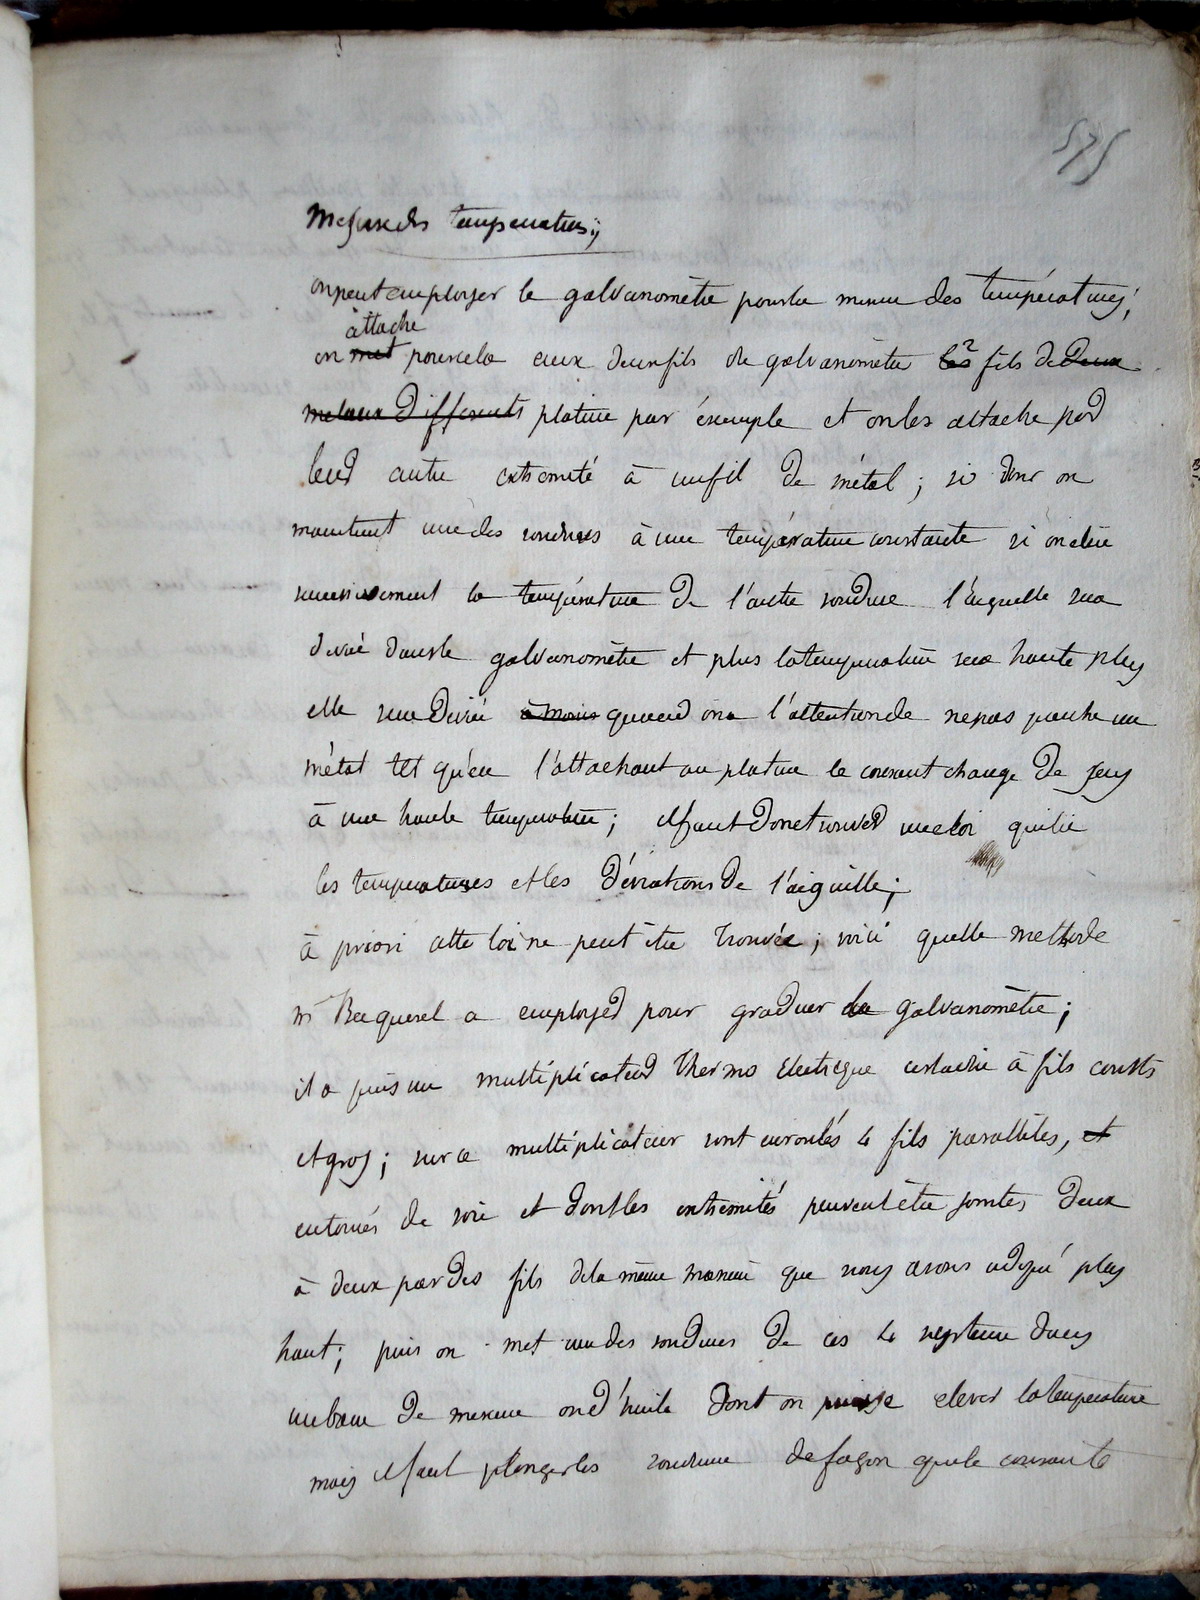 575
Mesure des températures;
on peut employer le galvanomètre pour la mesure des températures;
attache
on met pour cela aux deux fils du galvanomètre les 2 fils de deux
metaux differents platine par éxemple et on les attache par
leur autre extremité à un fil de métal; si donc on
maintient une des soudures à une température constante si on élève
successivement la température de l'autre soudure l'aiguille sera
deviée dans le galvanomètre et plus la temperature sera haute plus
elle sera deviée à moins quand on a l'attention de ne pas prendre un
métal tel qu'en l'attachant au platine le courant change de sens
à une haute temperature; il faut donc trouver une loi qui lie
les temperatures et les déviations de l'aiguille;
à priori cette loi ne peut être trouvée; voici quelle methode
mr Becquerel a employer pour graduer le galvanomètre;
il a pris un multiplicateur thermo électrique c'est à dire à fils courts
et gros; sur ce multiplicateur sont enroulés 4 fils parallèles, et
entourés de soie et dont les extremités peuvent être jointes deux
à deux par des fils de la même manière que nous avons indiqué plus
haut; puis on met une des soudures de ces 4 systeme dans
un bain de mercure ou d'huile dont on puisse elever la température
mais il faut plonger les soudure de façon que le courant